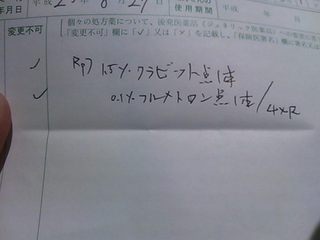 年月日 平成25年8月29日
使用期間 平成 年
変更不可
個々の処方薬について、後発医薬品(ジェネリック医薬品)への変更に
「変更不可」欄に「✓」又は「×」を記載し、「保険医署名」欄に署名又は
✓ Rp) 1.5% クラビット点 1本
✓ 0.1% フルメトロン点 1本 / 4×R